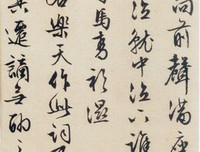 向前聲滿座
泣就中泣下誰
馬青衫濕
樂天作此詞
遷謫無聊